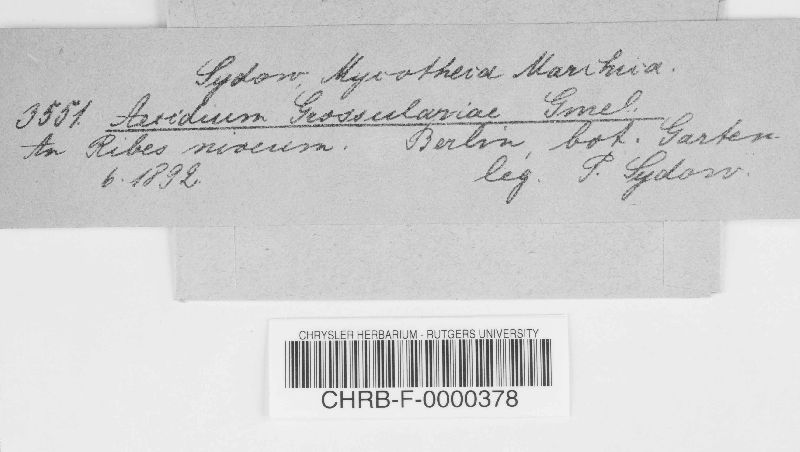 Sydow, Mycotheca Marchica.
3551. Aecidium Grossulariae Gmel.
An Ribes niveum. Berlin, bot. Garten
6.1892. leg. P. Sydow.
CHRYSLER HERBARIUM - RUTGERS UNIVERSITY
CHRB-F-0000378